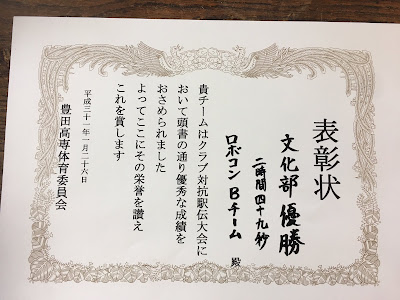 表彰状
文化部 優勝
二時間四十九秒
ロボコン Bチーム 殿
貴チームはクラブ対抗駅伝大会に
おいて頭書の通り優秀な成績を
おさめられました
よってここにその栄誉を讃え
これを賞します
平成三十一年一月二十六日
豊田高専体育委員会